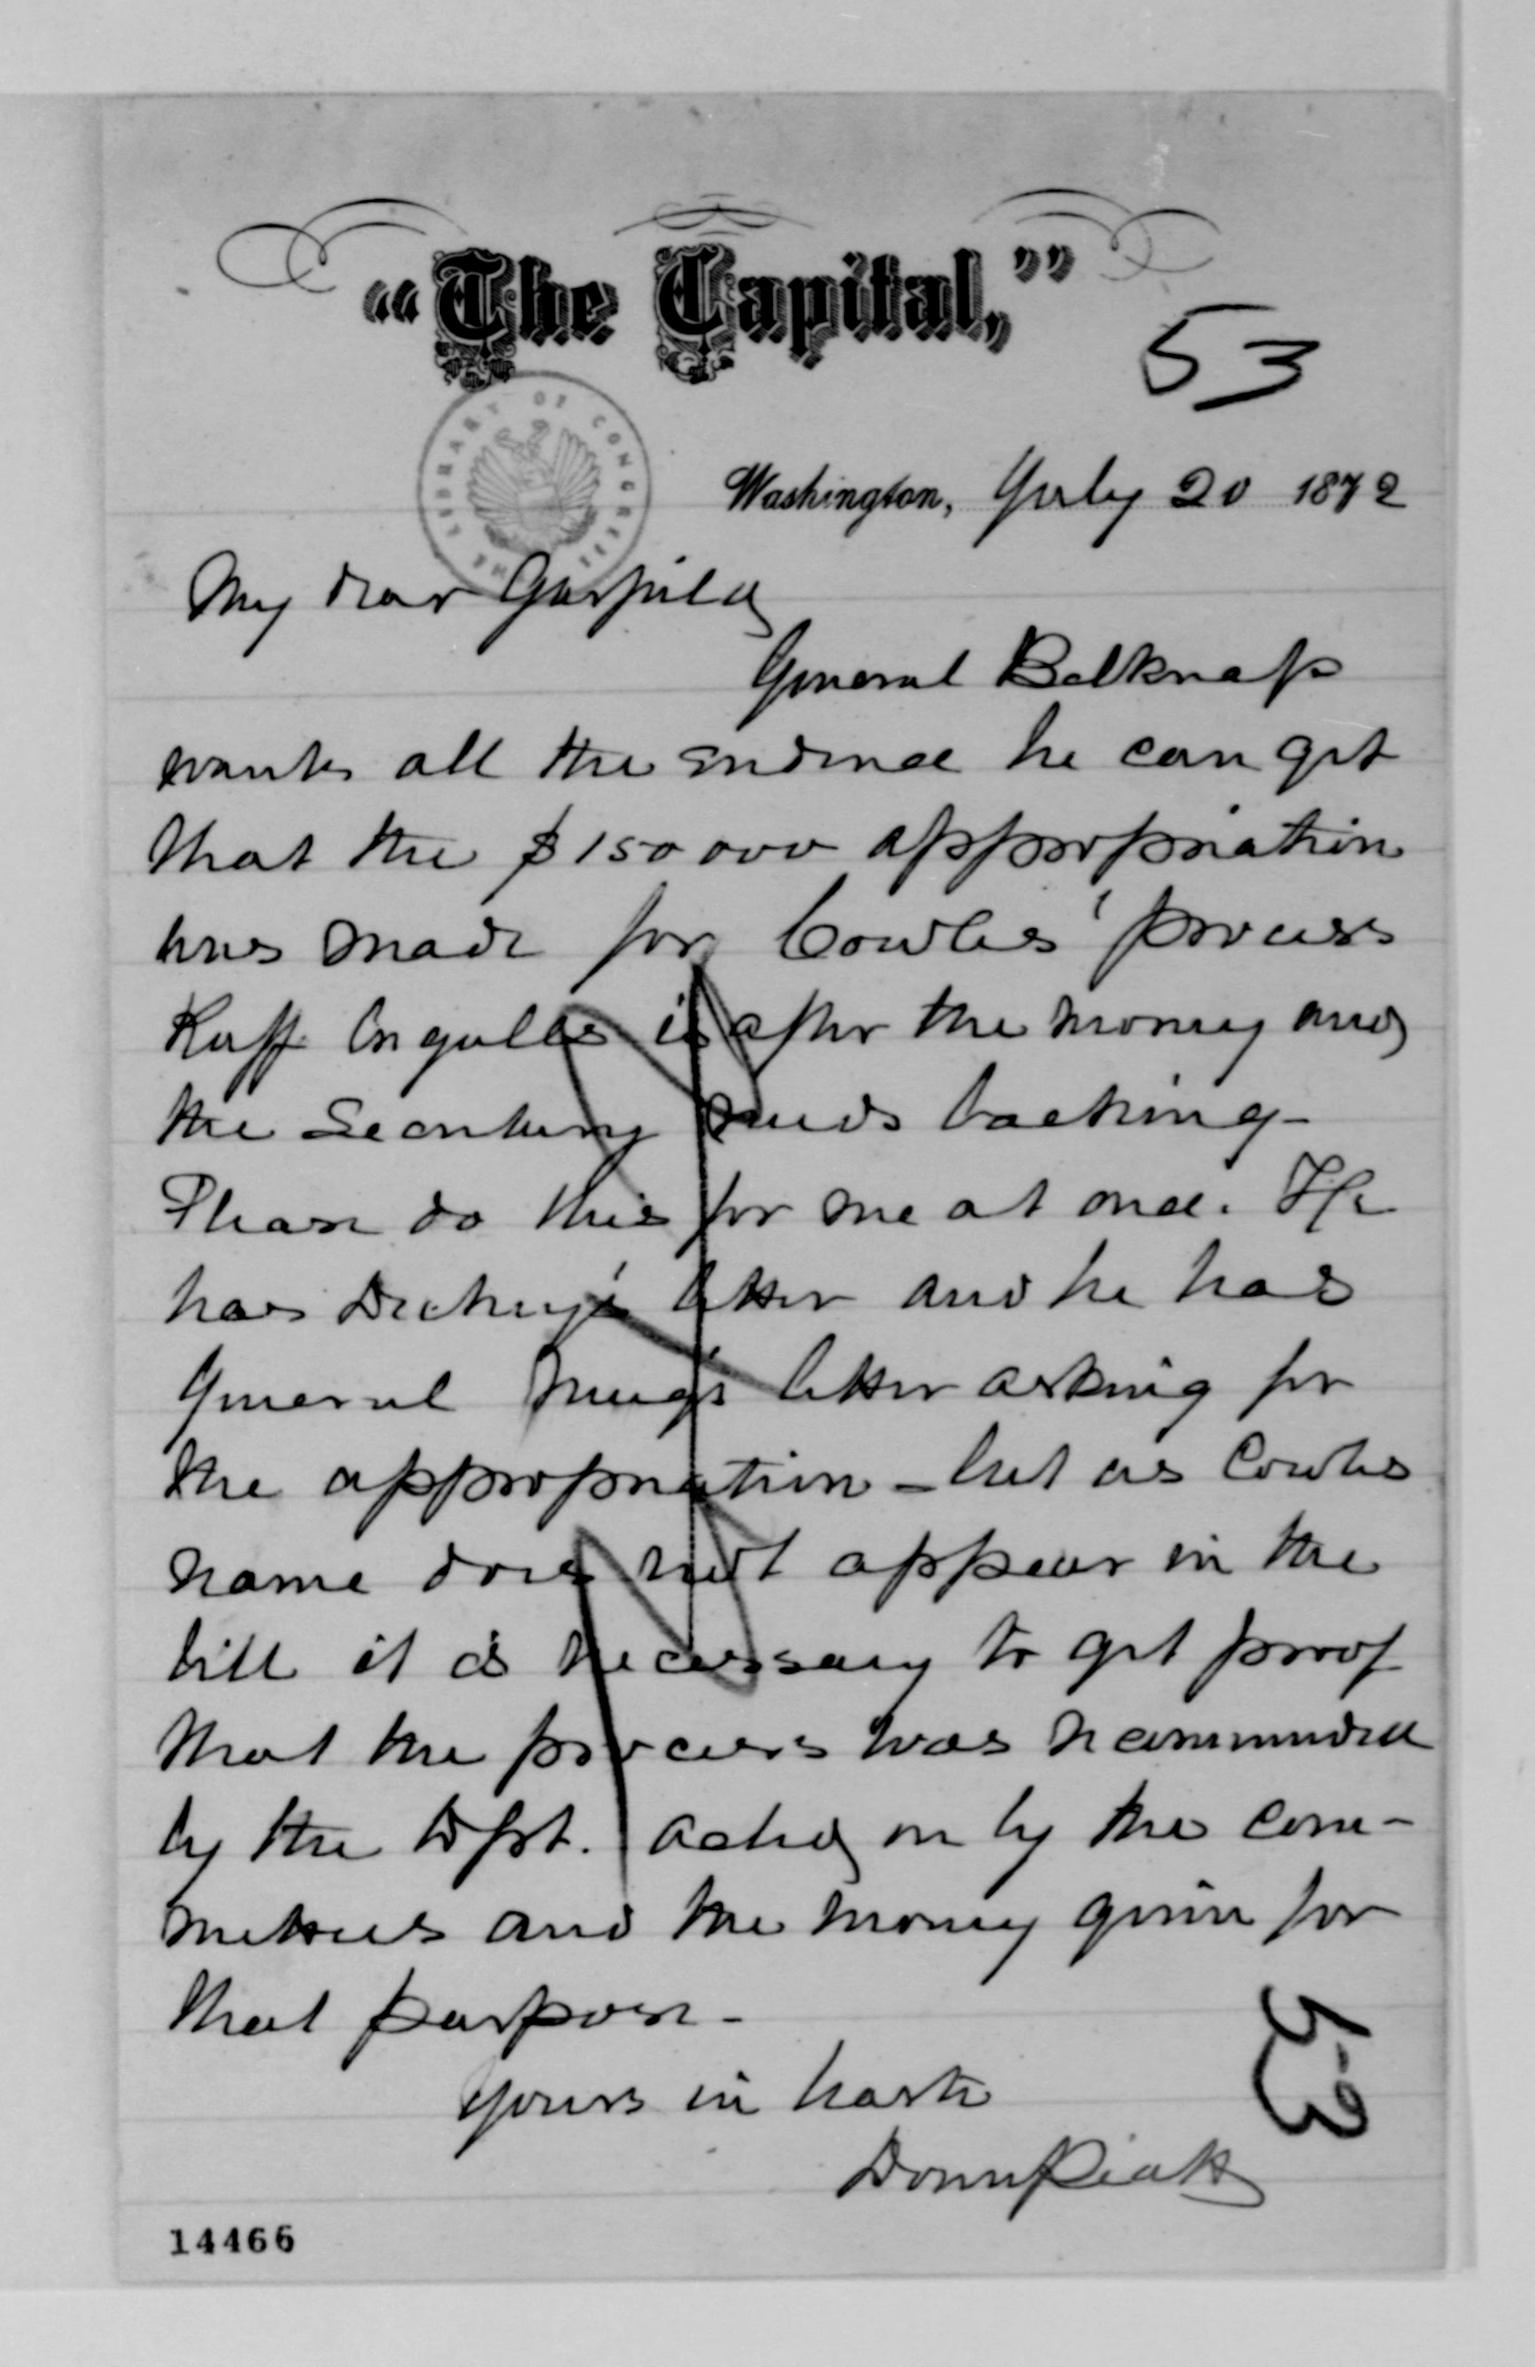 "The Capital,"
53
THE LIBRARY OF CONGRESS
Washington, July 20 1872
My dear Garfield
General Belknap
wants all the evidence he can get
that the $150000 appropriation
was made for Cowles' process
Ruff Ingalls is after the money and
the Secretary needs backing-
Please do this for me at once. He
has letter and he has
General Meigs letter asking for
the appropriation - but as Cowles
name does not appear in the
bill it is necessary to get proof
that the process was recommended
by the Dept. acted on by the com-
mittees and the money given for
that purpose -
Yours in haste
Donn Piatt
53
14466